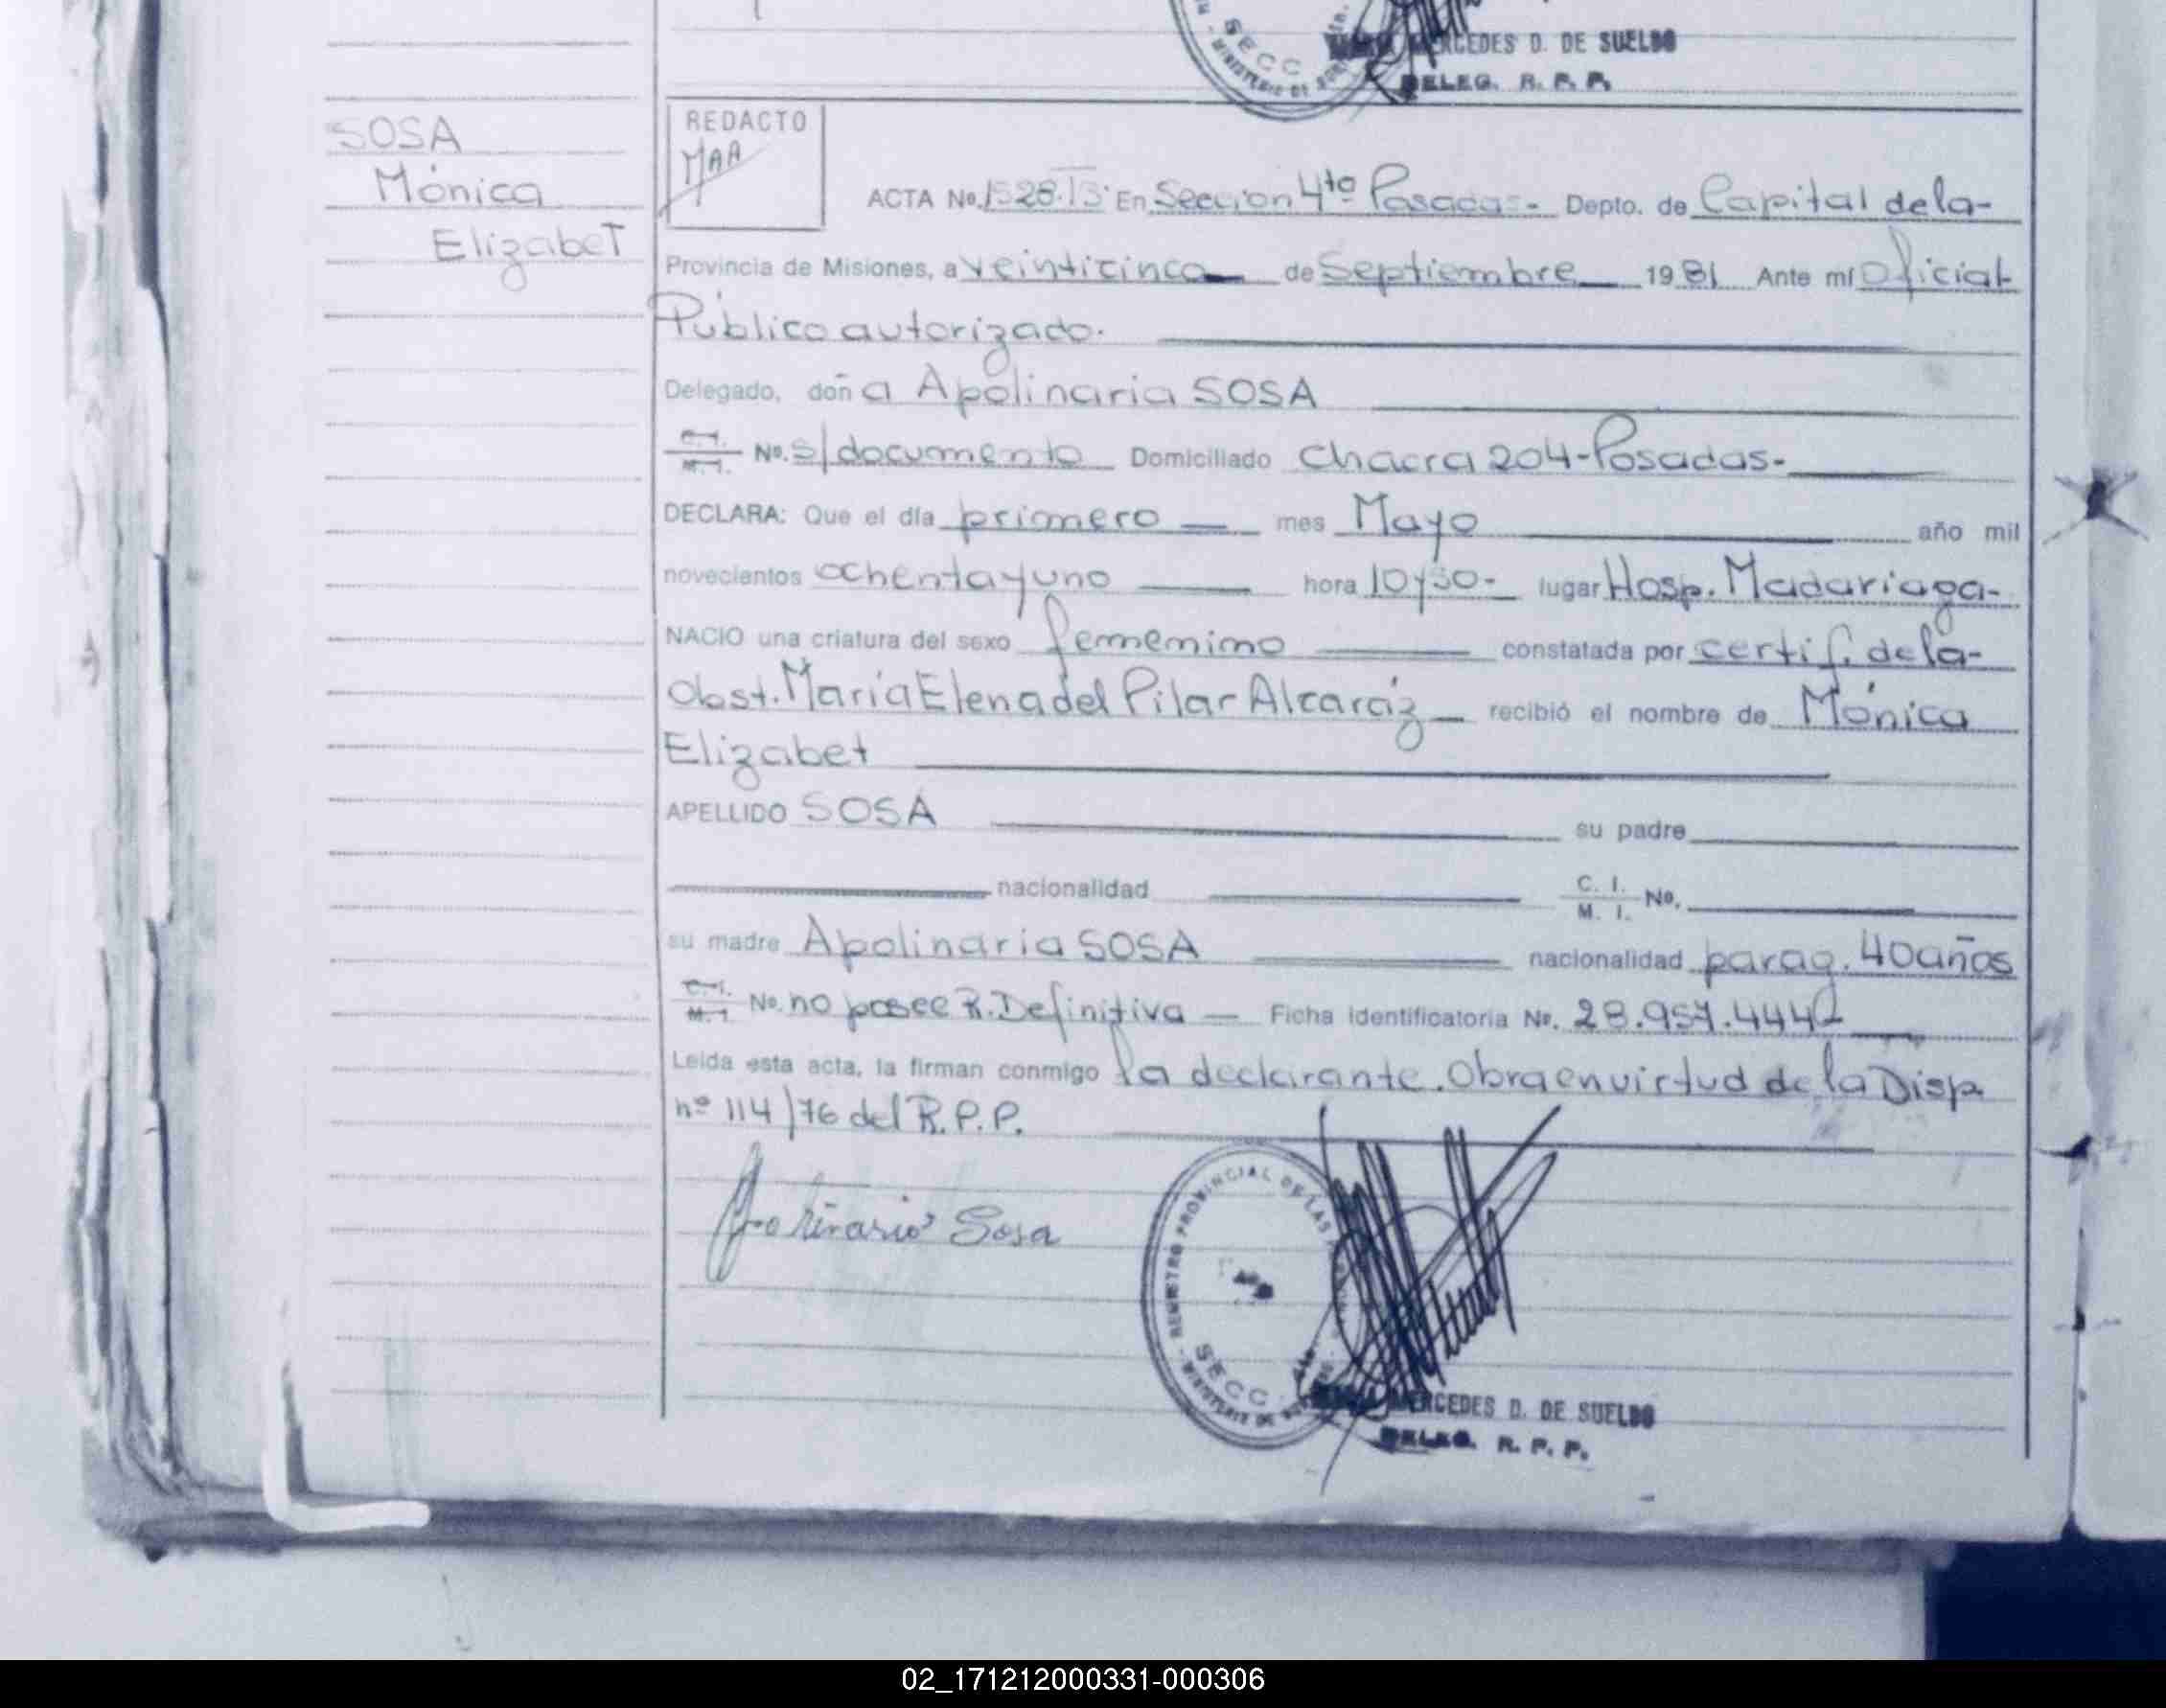 SECC
MERCEDES D. DE SUELDO
DELEG. R. P. P.
SOSA
Mónica
Elizabet
REDACTO
MAA
ACTA No. 1528.T3 En Sección 4ta Posadas.- Depto. de Capital de la-
Provincia de Misiones, a veinticinco de Septiembre 1981 Ante mí Oficial
Público autorizado.
Delegado, doña Apolinaria SOSA
C.I. M.I. No. s/documento Domiciliado Chacra 204-Posadas-
DECLARA: Que el día primero mes Mayo año mil
novecientos ochenta y uno hora 10y30- lugar Hosp. Madariaga-
NACIO una criatura del sexo femenino constatada por certif. de la-
Obst. María Elena del Pilar Alcaráz recibió el nombre de Mónica
Elizabet
APELLIDO SOSA su padre
nacionalidad C. I. M. I. No.
su madre Apolinaria SOSA nacionalidad parag. 40 años
C.I. M.I. No. no posee R. Definitiva Ficha Identificatoria No. 28.957.444
Leída esta acta, la firman conmigo la declarante. Obra en virtud de la Disp
nº 114/76 del R.P.P.
Sosa
REGISTRO PROVINCIAL DE LAS
SECC
MERCEDES D. DE SUELDO
DELEG. R. P. P.
02_171212000331-000306